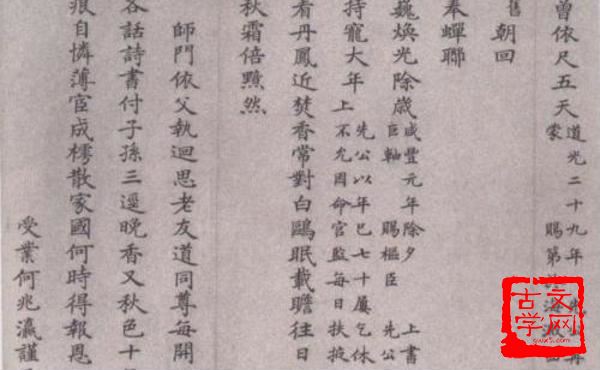 曾依尺五天道光二十九年
蒙 賜第
舊朝回
奉蟬聯
巍煥光除歲咸豐元年除夕 上書
巨軸 賜樞臣 先公
持寵大年先公以年巳七十屢乞休
上不允因命官監每日扶掖
看丹鳳近焚香常對白鷗眠載瞻往日
秋霜倍黯然
師門依父執迴思老友道同尊每開
各話詩書付子孫三逕晚香又秋色十
痕自憐薄官成樗散家國何時得報恩
受業何兆瀛謹
古文
学网